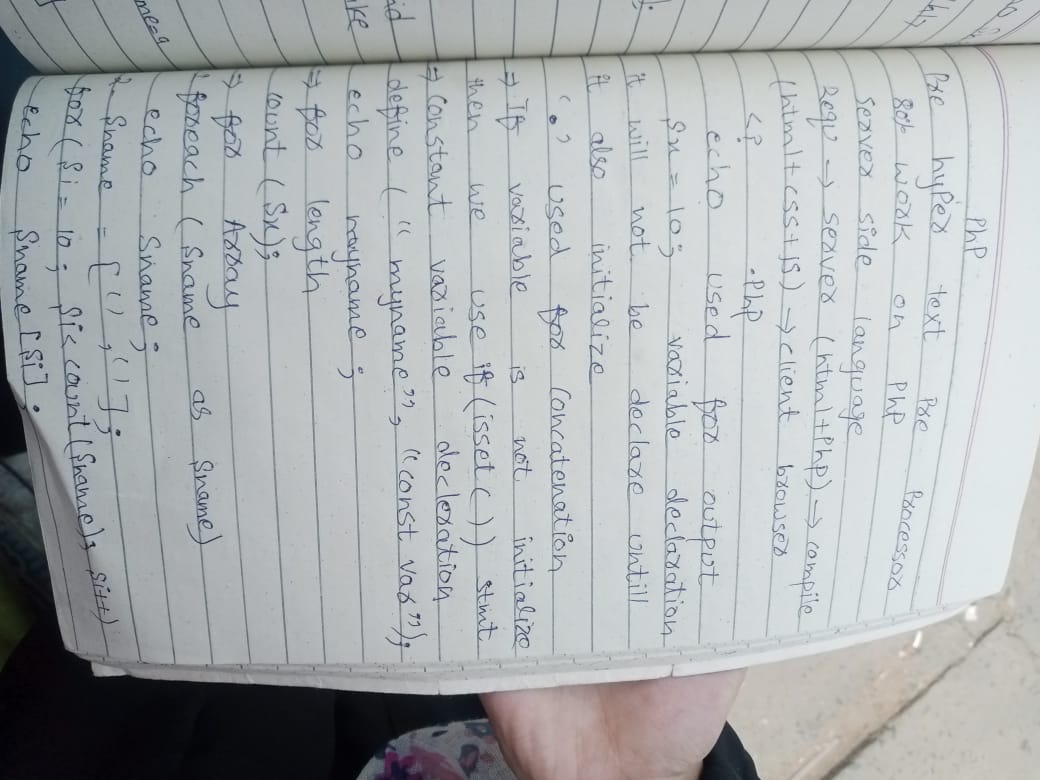 PhP
Pre hyper text Pre Processor
80% work on PhP
Server side language
Requ → server (html+Php) → compile
(html+css+js) → client browser
<? .PhP
echo used for output
$x = 10; variable declaration
it will not be declare untill
it also initialize
'.' used for Concatenation
⇒ If variable is not initialize
then we use if (isset ( )) stmt
⇒ Constant variable decleration
define ( "myname", "const var");
echo myname ;
⇒ for length
count ($x);
⇒ for Array
1 foreach ( $name as $name)
echo $name ;
2- $name = [ '' , '' ] ;
for ( $i = 10 ; $i< count ($name); $i++)
echo $name [$i] ;